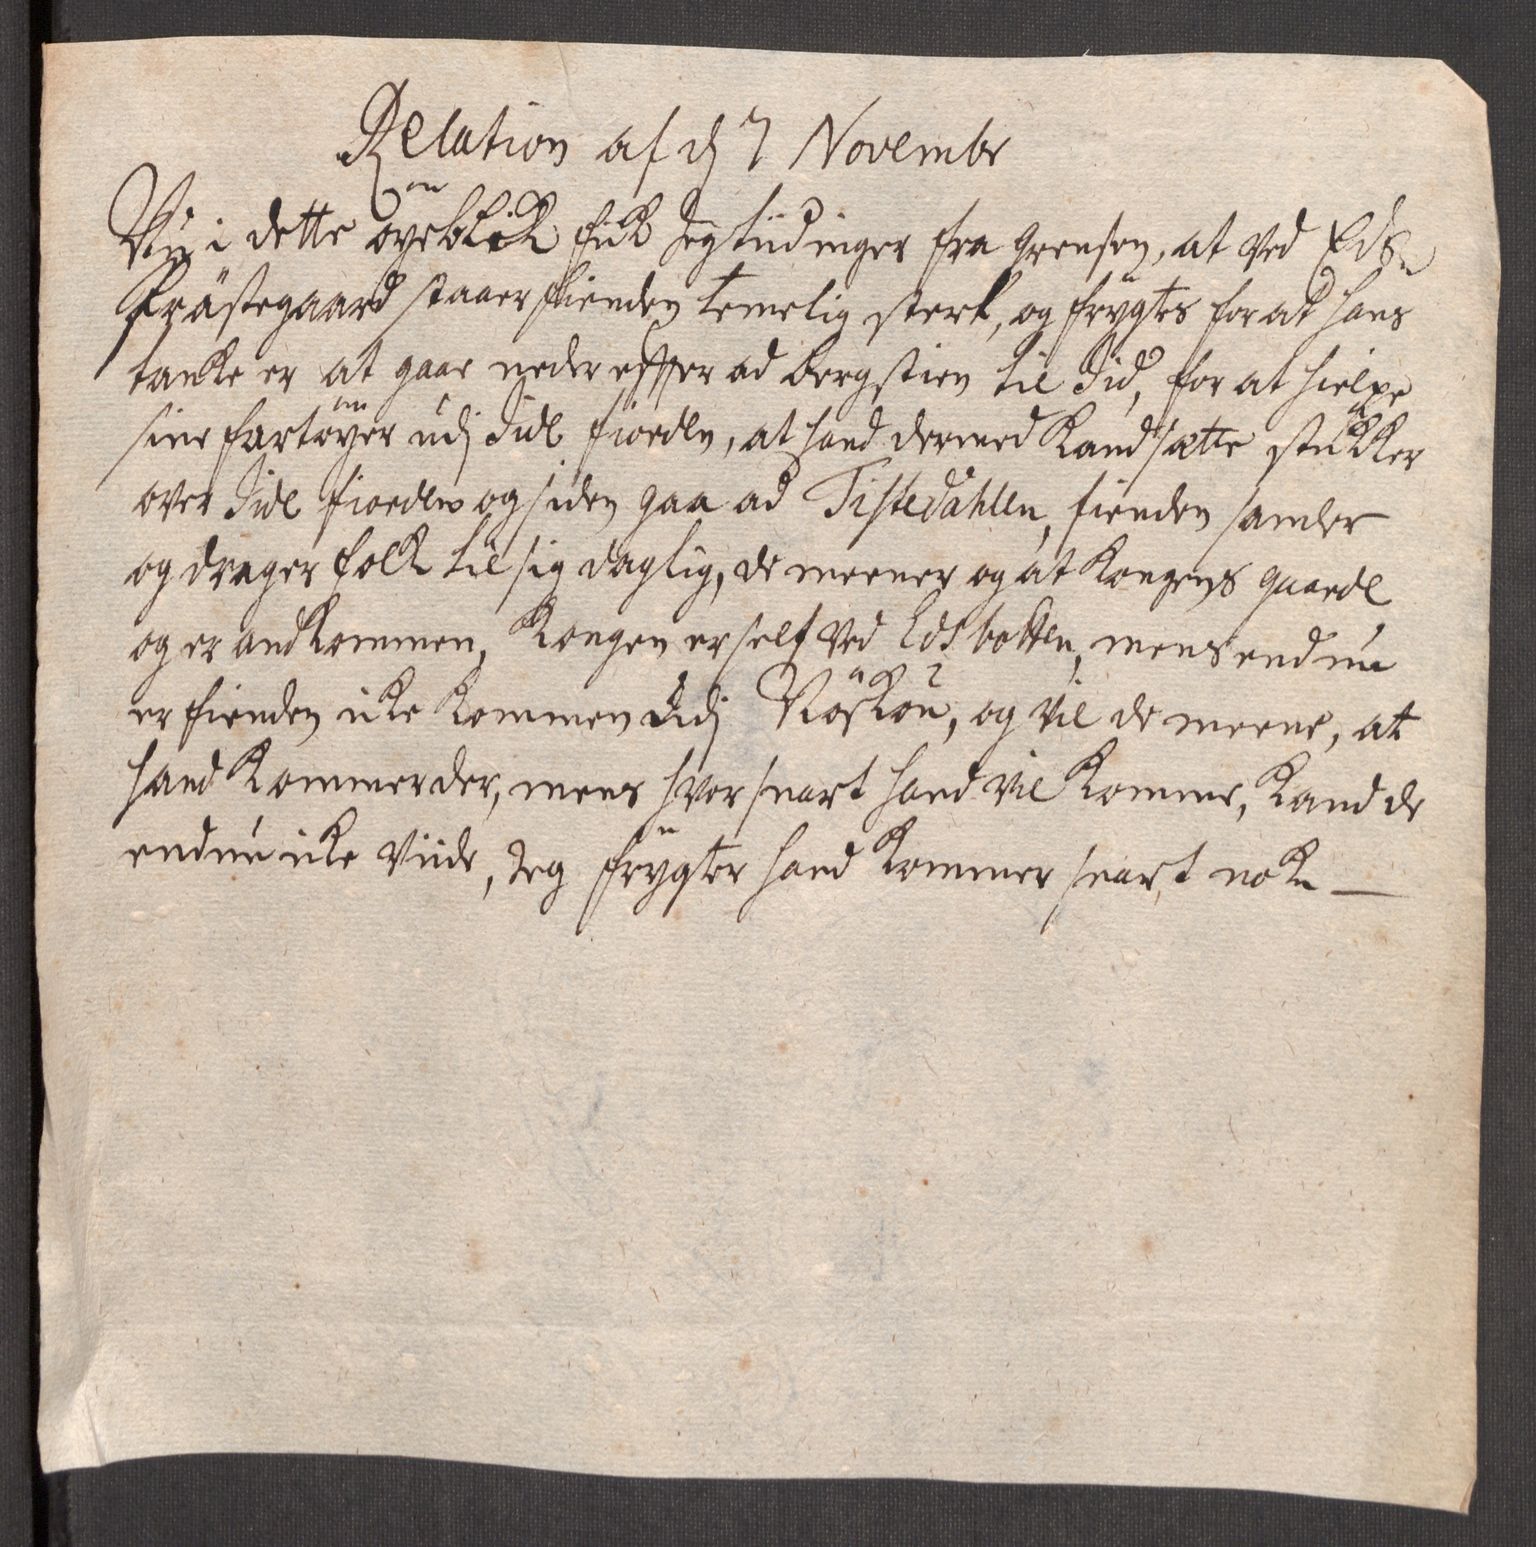 Relation af d 7 Novembr
Nu i dette øyeblik fick Jeg tiidinger fra Grensen, at ved Eds
Præstegaard staaer fienden temelig sterk, og frygtes for at hans
tanke er at gaae neder effter ad bergstien til Id, for at hielpe
sine fartøyer udj Idefiorden, at hand dermed Kand sætte støkker
over Idefiorden og siden gaa ad Tistedahlen, fienden samler
og drager folk til sig daglig, de meener og at Kongens guarde
og er andkommen, Kongen er self ved Edsbotten, mens endnu
er fienden icke kommen udj, og vil de meene, at
hand kommer der, mens hvor snart hand vil komme, kand de
endnu icke viide, Jeg frygter hand kommer snart nok —